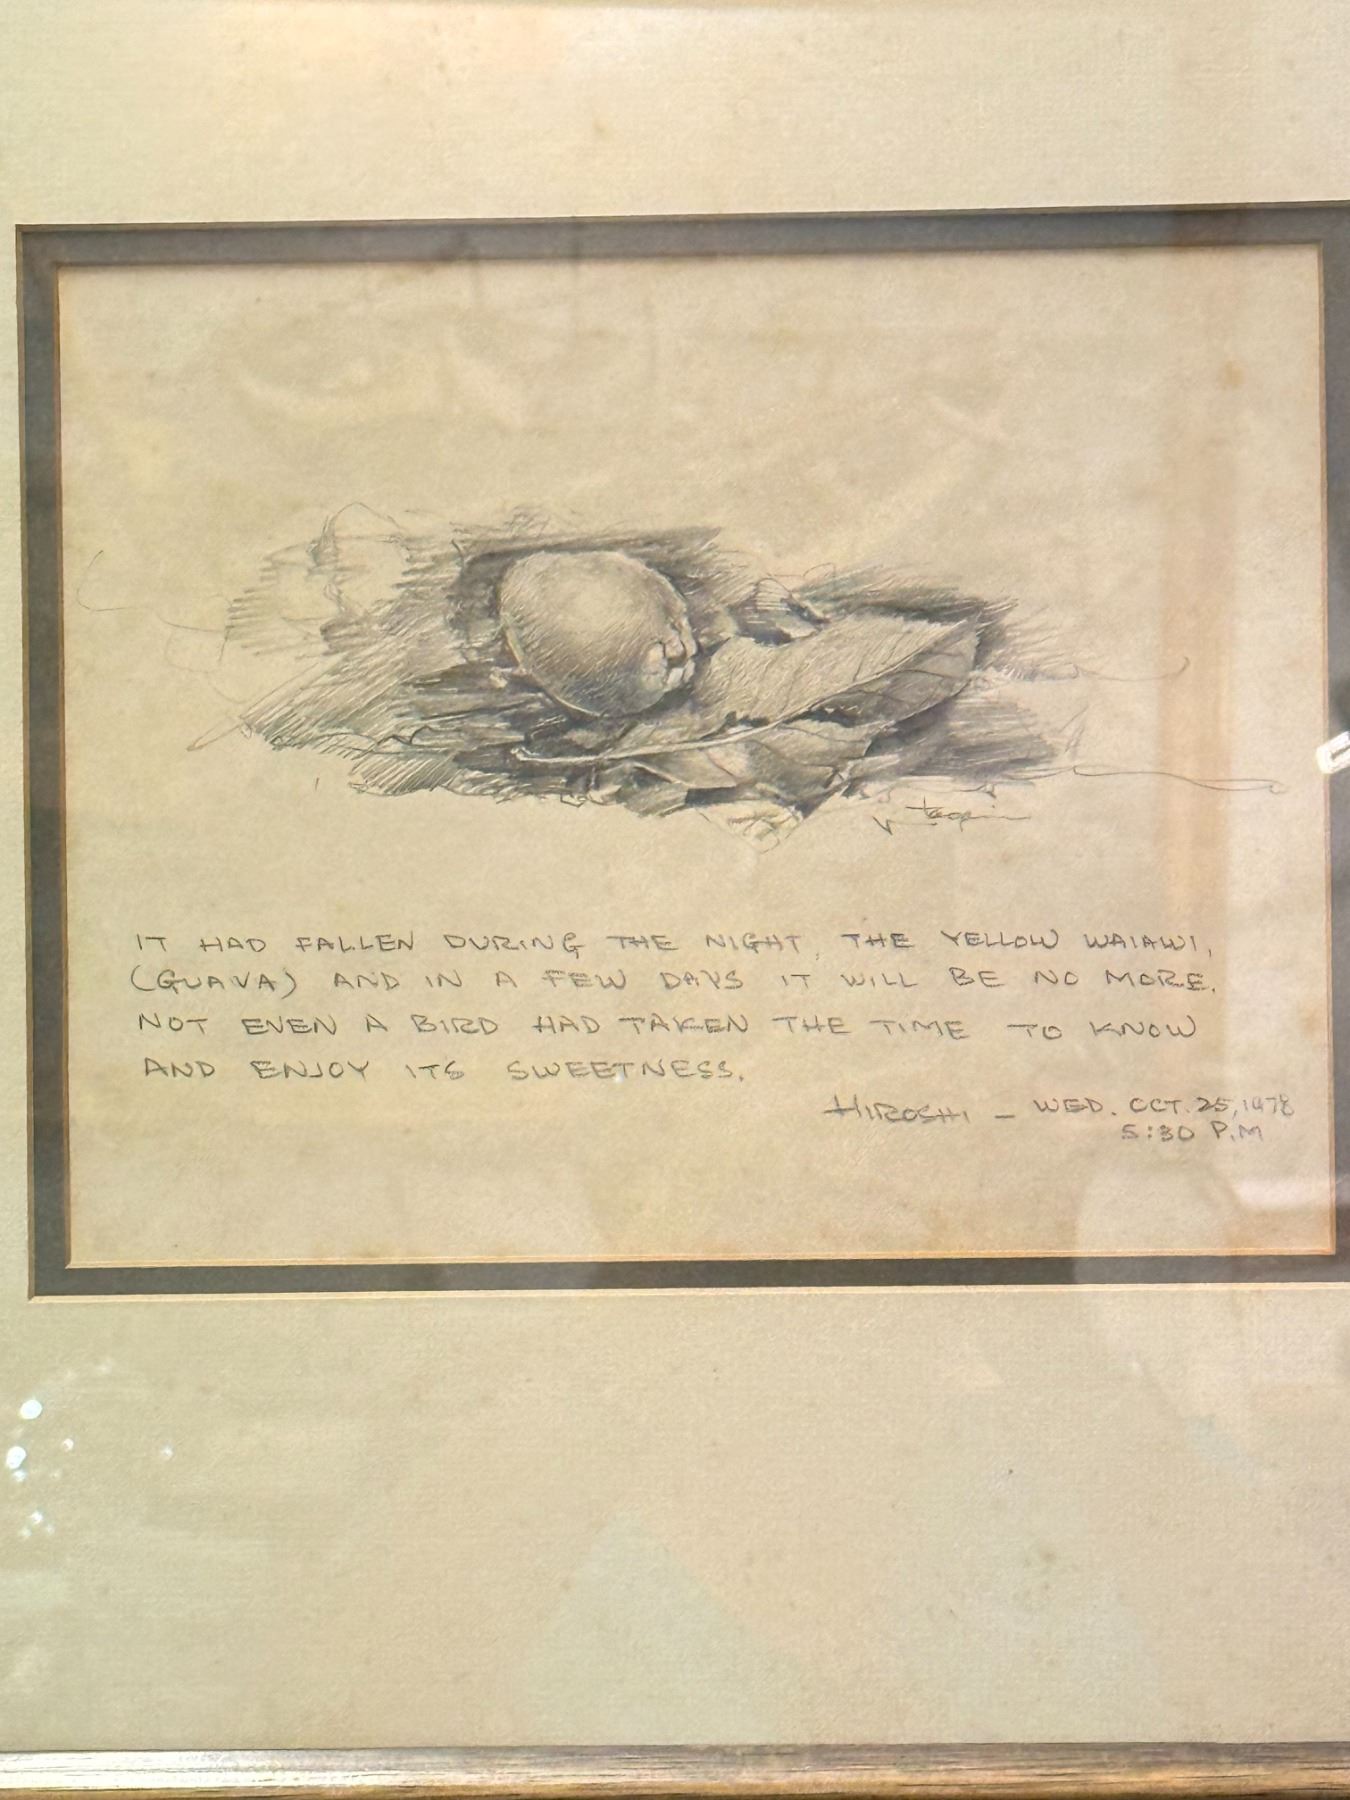 tagami
IT HAD FALLEN DURING THE NIGHT, THE YELLOW WAIAWI,
(GUAVA) AND IN A FEW DAYS IT WILL BE NO MORE.
NOT EVEN A BIRD HAD TAKEN THE TIME TO KNOW
AND ENJOY ITS SWEETNESS.
HIROSHI – WED. OCT. 25, 1978
5:30 P.M